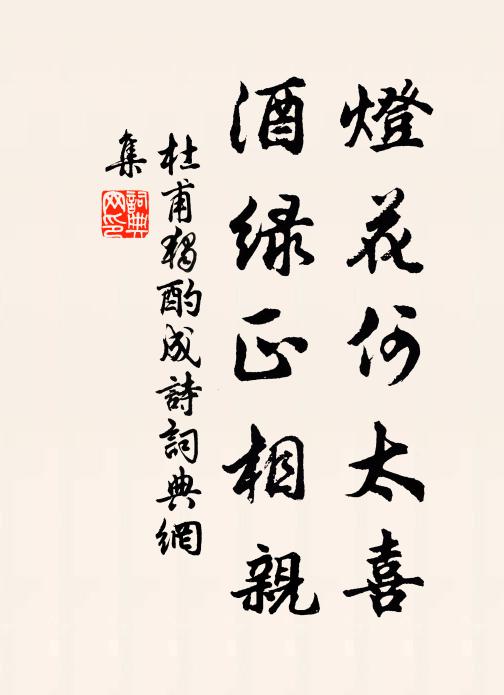 燈花何太喜
酒绿正相親
杜甫獨酌成詩詞典網
集
詞典
网印